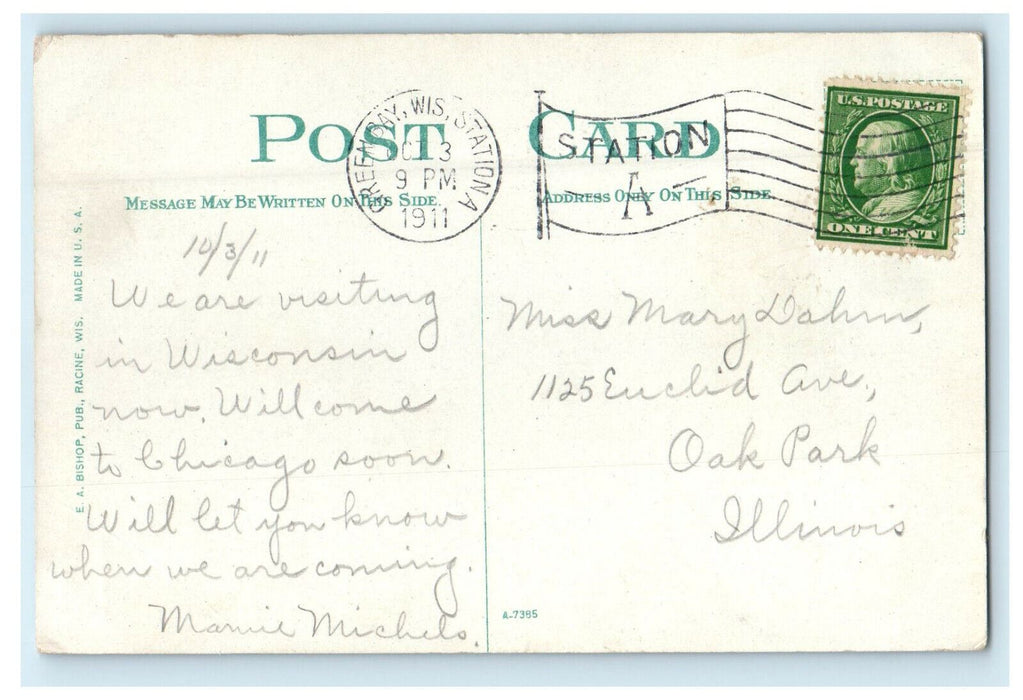 POST CARD
GREEN BAY, WIS. STATION A
OCT 3
9 PM
1911
STATION
A
U.S. POSTAGE
ONE CENT
MESSAGE MAY BE WRITTEN ON THIS SIDE.
ADDRESS ONLY ON THIS SIDE.
E. A. BISHOP, PUB., RACINE, WIS. MADE IN U. S. A.
10/3/11
We are visiting
in Wisconsin
now. Will come
to Chicago soon.
Will let you know
when we are coming.
Mamie Michels.
Miss Mary Dahm,
1125 Euclid Ave.,
Oak Park
Illinois
A-7385